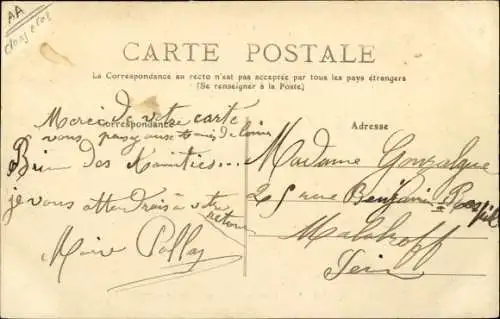 AA
CARTE POSTALE
La Correspondance au recto n'est pas acceptée par tous les pays étrangers
(Se renseigner à la Poste)
Correspondance
Merci de votre carté
vous pensez aux amis de loin
Bien des Amitiés...
je vous attendrais à votre
retour
Marie
Adresse
Madame Gonzalgue
25 rue Benjamin Raspail
Malakoff
Seine